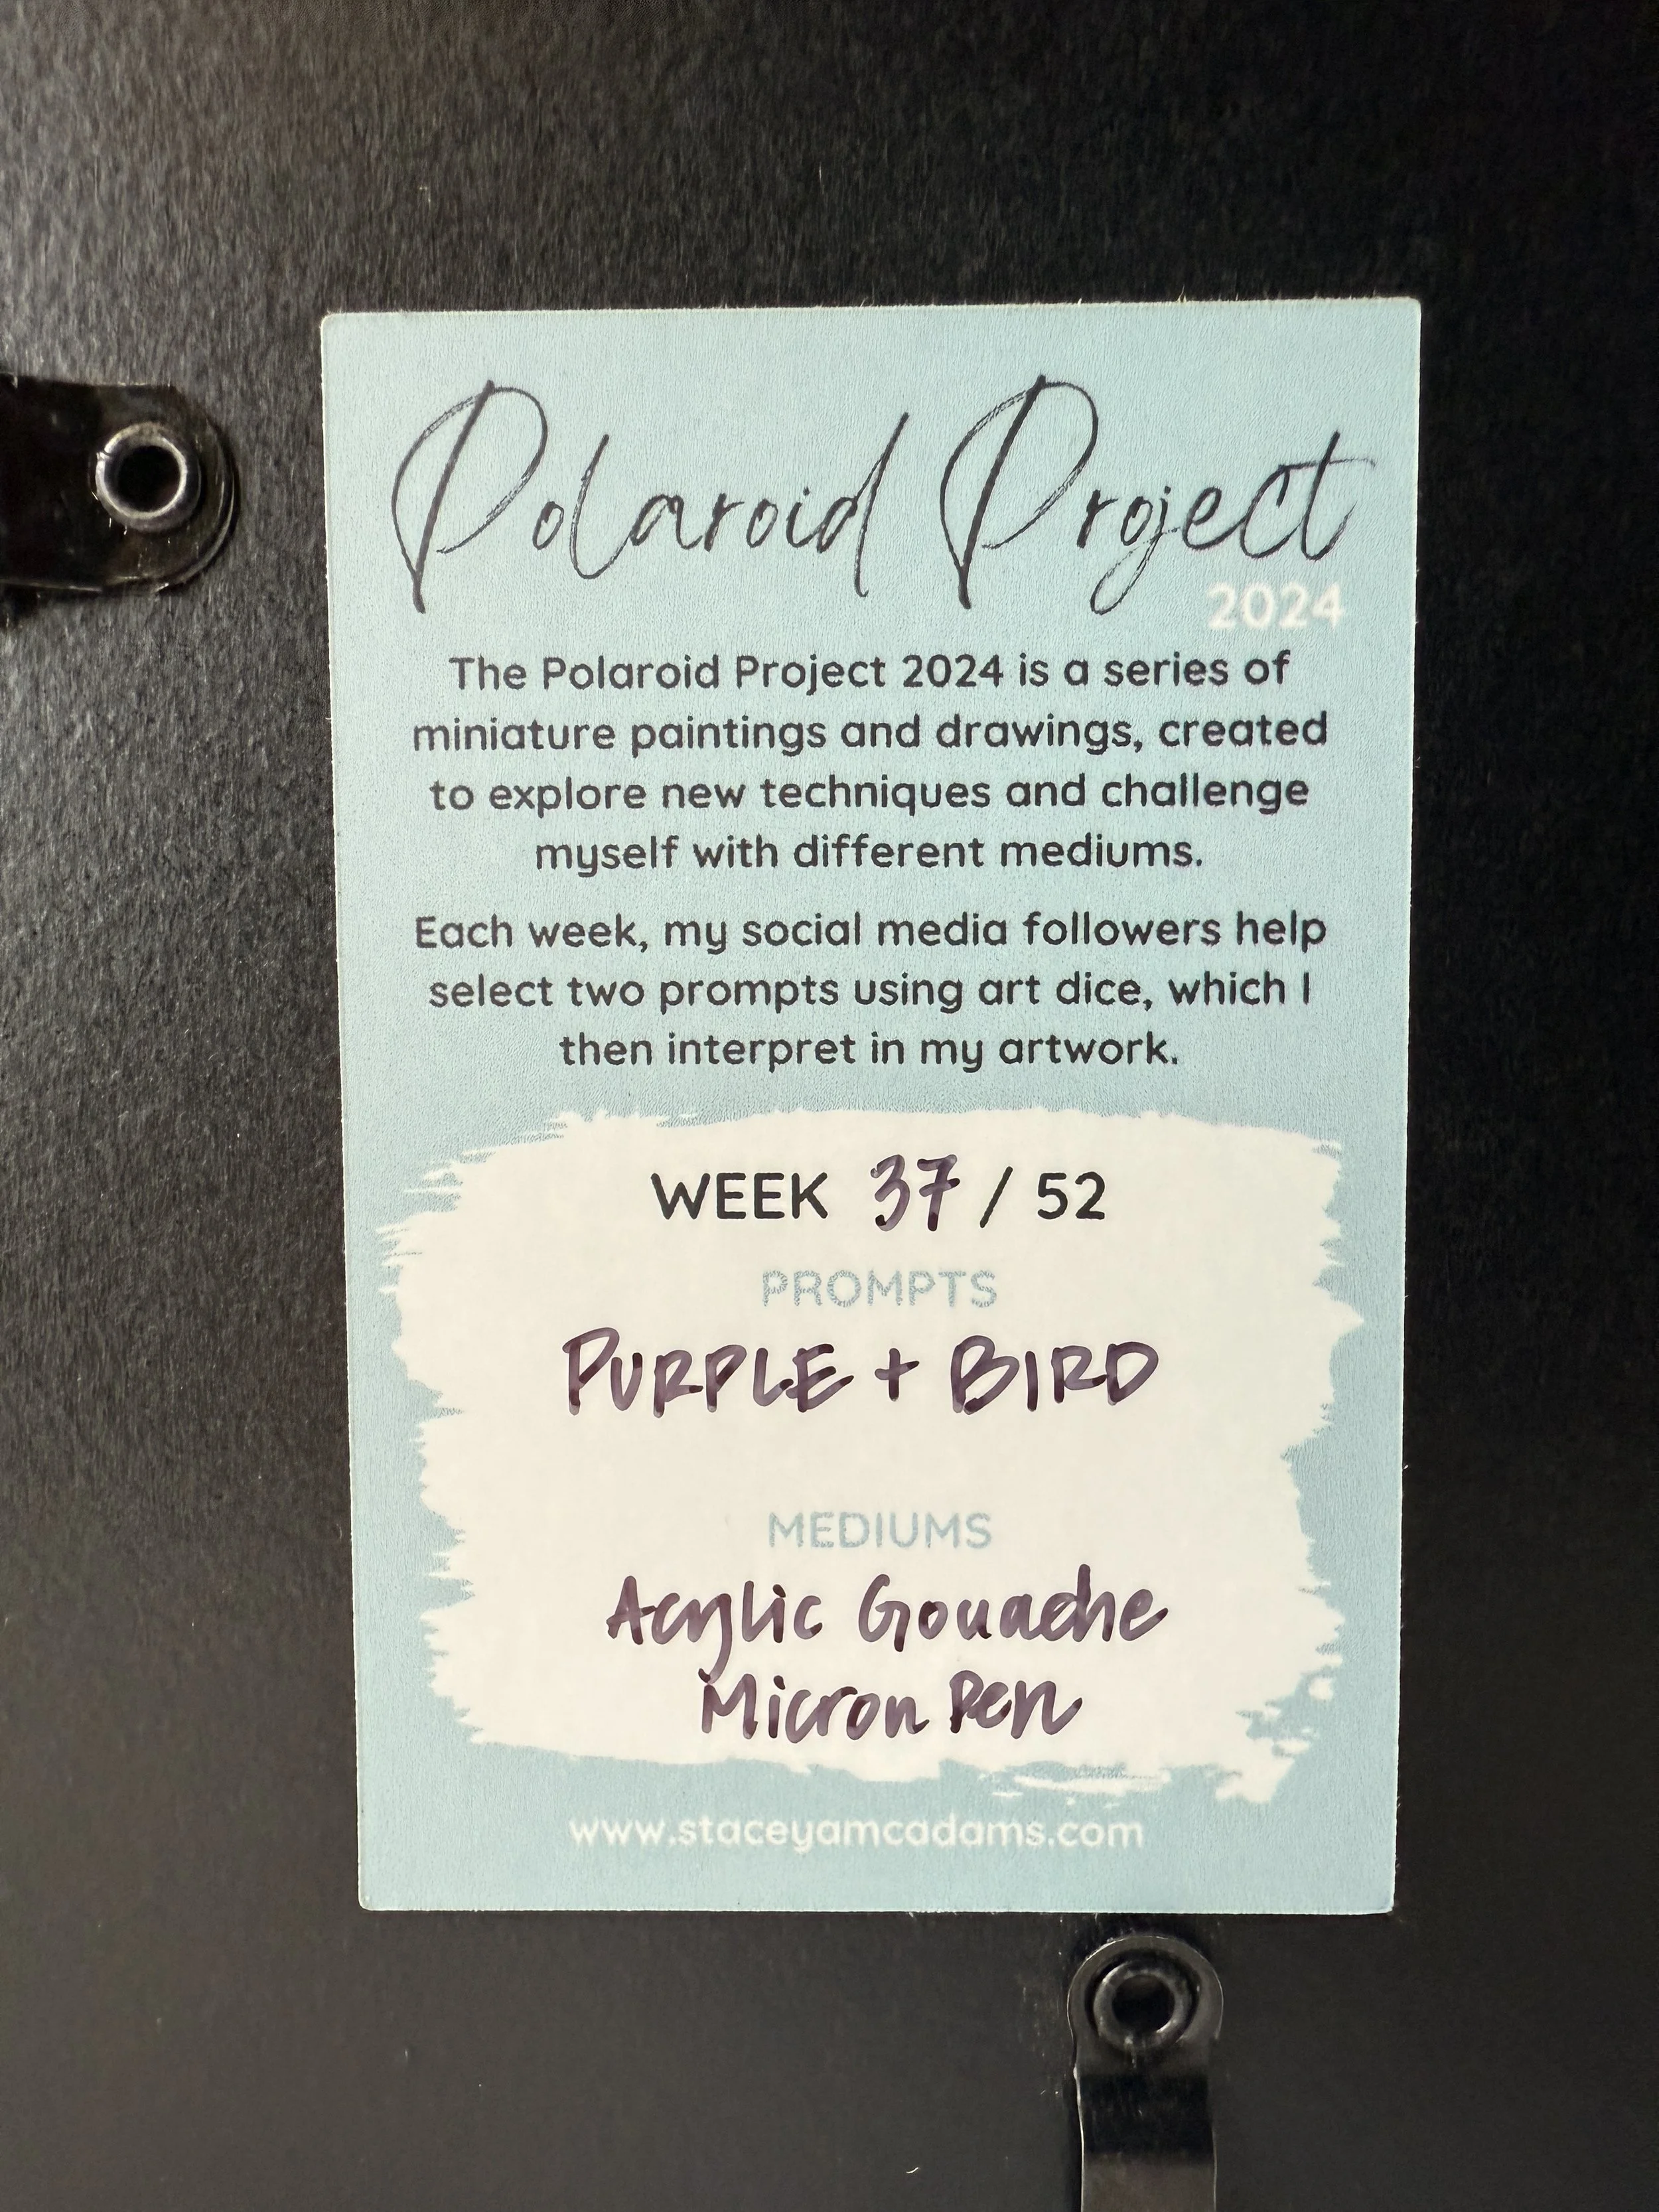 Polaroid Project
2024
The Polaroid Project 2024 is a series of
miniature paintings and drawings, created
to explore new techniques and challenge
myself with different mediums.
Each week, my social media followers help
select two prompts using art dice, which I
then interpret in my artwork.
WEEK 37 / 52
PROMPTS
PURPLE + BIRD
MEDIUMS
Acrylic Gouache
Micron Pen
www.staceyamcadams.com